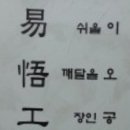 易 쉬울 이
悟 깨달을 오
工 장인 공